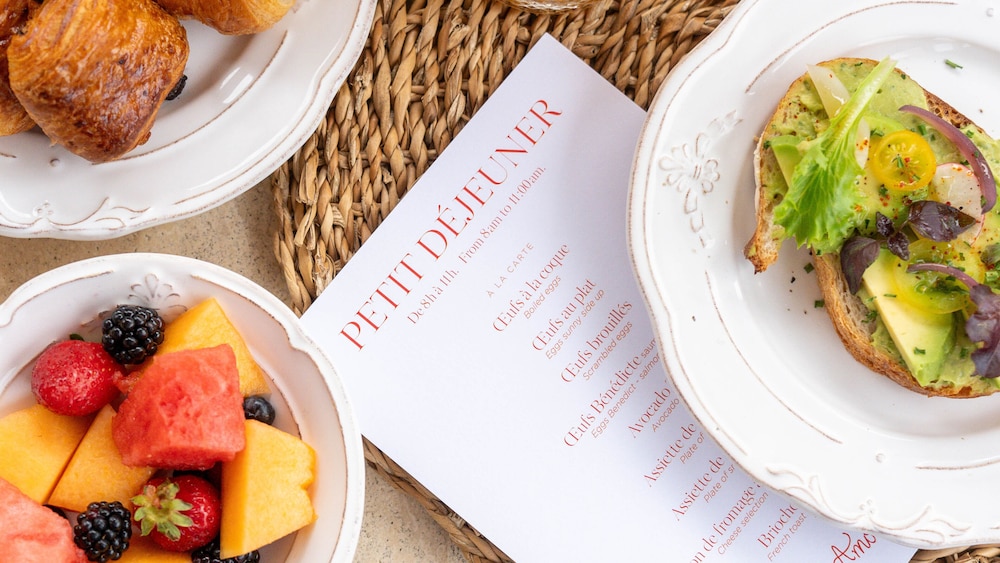 PETIT DÉJEUNER
De 8h à 11h. From 8am to 11:00am.
À LA CARTE
Œufs à la coque
Boiled eggs
Œufs au plat
Eggs sunny side up
Œufs brouillés
Scrambled eggs
Œufs Bénédicte
Eggs Benedict - salmo
Avocado
Avocado
Assiette de
Plate of
Assiette de
Plate of s
n de fromage
Cheese selection
Brioche
French toast